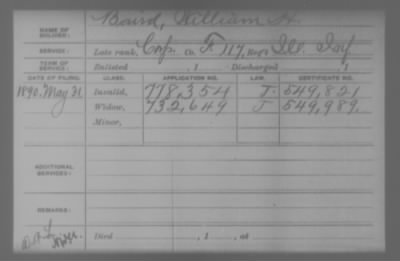 Bowd, William H.
NAME OF SOLDIER:
SERVICE: Late rank, Corp. Co. F, 117, Reg't Ill. Inf.
TERM OF SERVICE: Enlisted , 1 Discharged , 1
DATE OF FILING. CLASS. APPLICATION NO. LAW. CERTIFICATE NO.
1890. May 21 Invalid, 778,354 J. 549,821
Widow, 732,649 J 549,989.
Minor,
ADDITIONAL SERVICES:
REMARKS:
Died , 1 , at